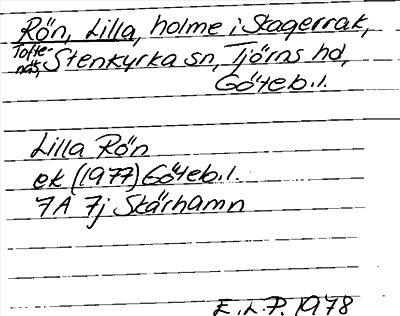 Rön, Lilla, holme i Skagerrak,
Tofte-
näs, Stenkyrka sn, Tjörns hd,
Göteb.l.
Lilla Rön
ek (1977) Göteb.l.
7A 7j Skärhamn
E.L.P. 1978